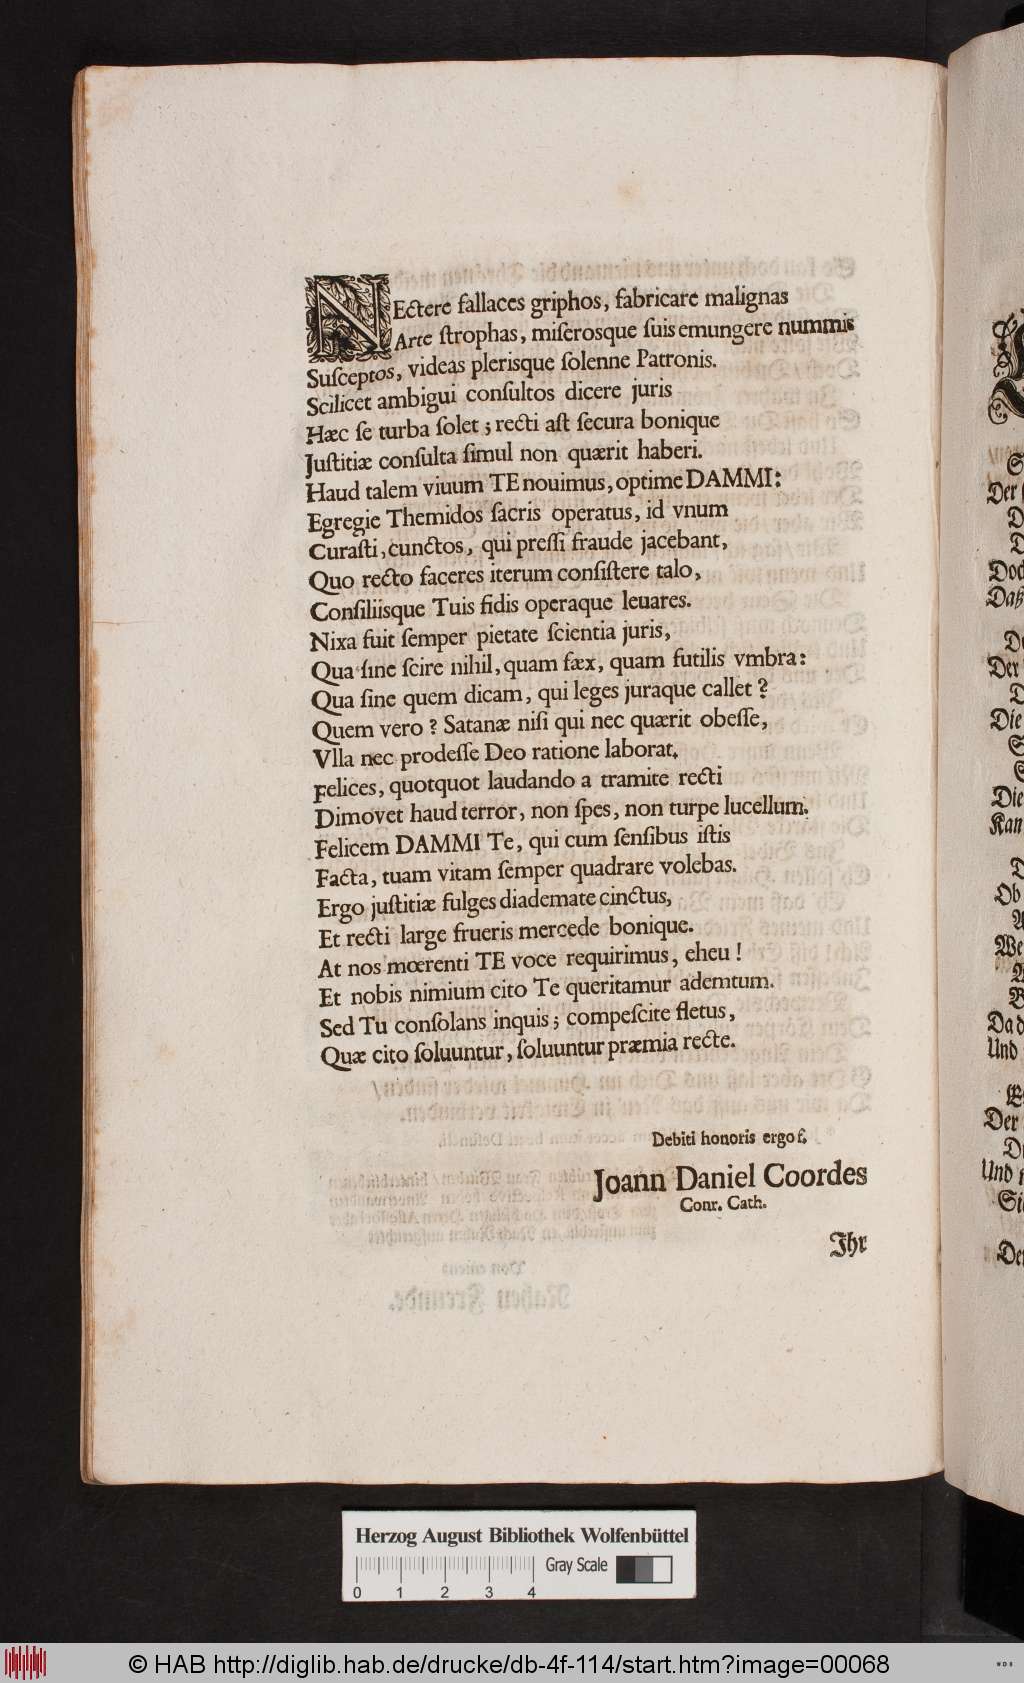 NEctere fallaces griphos, fabricare malignas
Arte ſtrophas, miſerosque ſuis emungere nummis
Suſceptos, videas plerisque ſolenne Patronis.
Scilicet ambigui conſultos dicere juris
Hæc ſe turba ſolet; recti aſt ſecura bonique
Juſtitiæ conſulta ſimul non quærit haberi.
Haud talem viuum TE nouimus, optime DAMMI:
Egregie Themidos ſacris operatus, id vnum
Curaſti, cunctos, qui preſſi fraude jacebant,
Quo recto faceres iterum conſiſtere talo,
Conſiliisque Tuis fidis operaque leuares.
Nixa fuit ſemper pietate ſcientia juris,
Qua ſine ſcire nihil, quam fæx, quam futilis vmbra:
Qua ſine quem dicam, qui leges juraque callet?
Quem vero? Satanæ niſi qui nec quærit obeſſe,
Vlla nec prodeſſe Deo ratione laborat.
Felices, quotquot laudando a tramite recti
Dimovet haud terror, non ſpes, non turpe lucellum.
Felicem DAMMI Te, qui cum ſenſibus iſtis
Facta, tuam vitam ſemper quadrare volebas.
Ergo juſtitiæ fulges diademate cinctus,
Et recti large frueris mercede bonique.
At nos mœrenti TE voce requirimus, eheu!
Et nobis nimium cito Te queritamur ademtum.
Sed Tu conſolans inquis; compeſcite fletus,
Quæ cito ſoluuntur, ſoluuntur præmia recte.
Debiti honoris ergo f.
Joann Daniel Coordes
Conr. Cath.
Ihr
Der
Doch
Daß
Der
Die
Die
Kan
Ob
We
Da d
Und
Der
Und
Herzog August Bibliothek Wolfenbüttel
Gray Scale
0 1 2 3 4
© HAB http://diglib.hab.de/drucke/db-4f-114/start.htm?image=00068